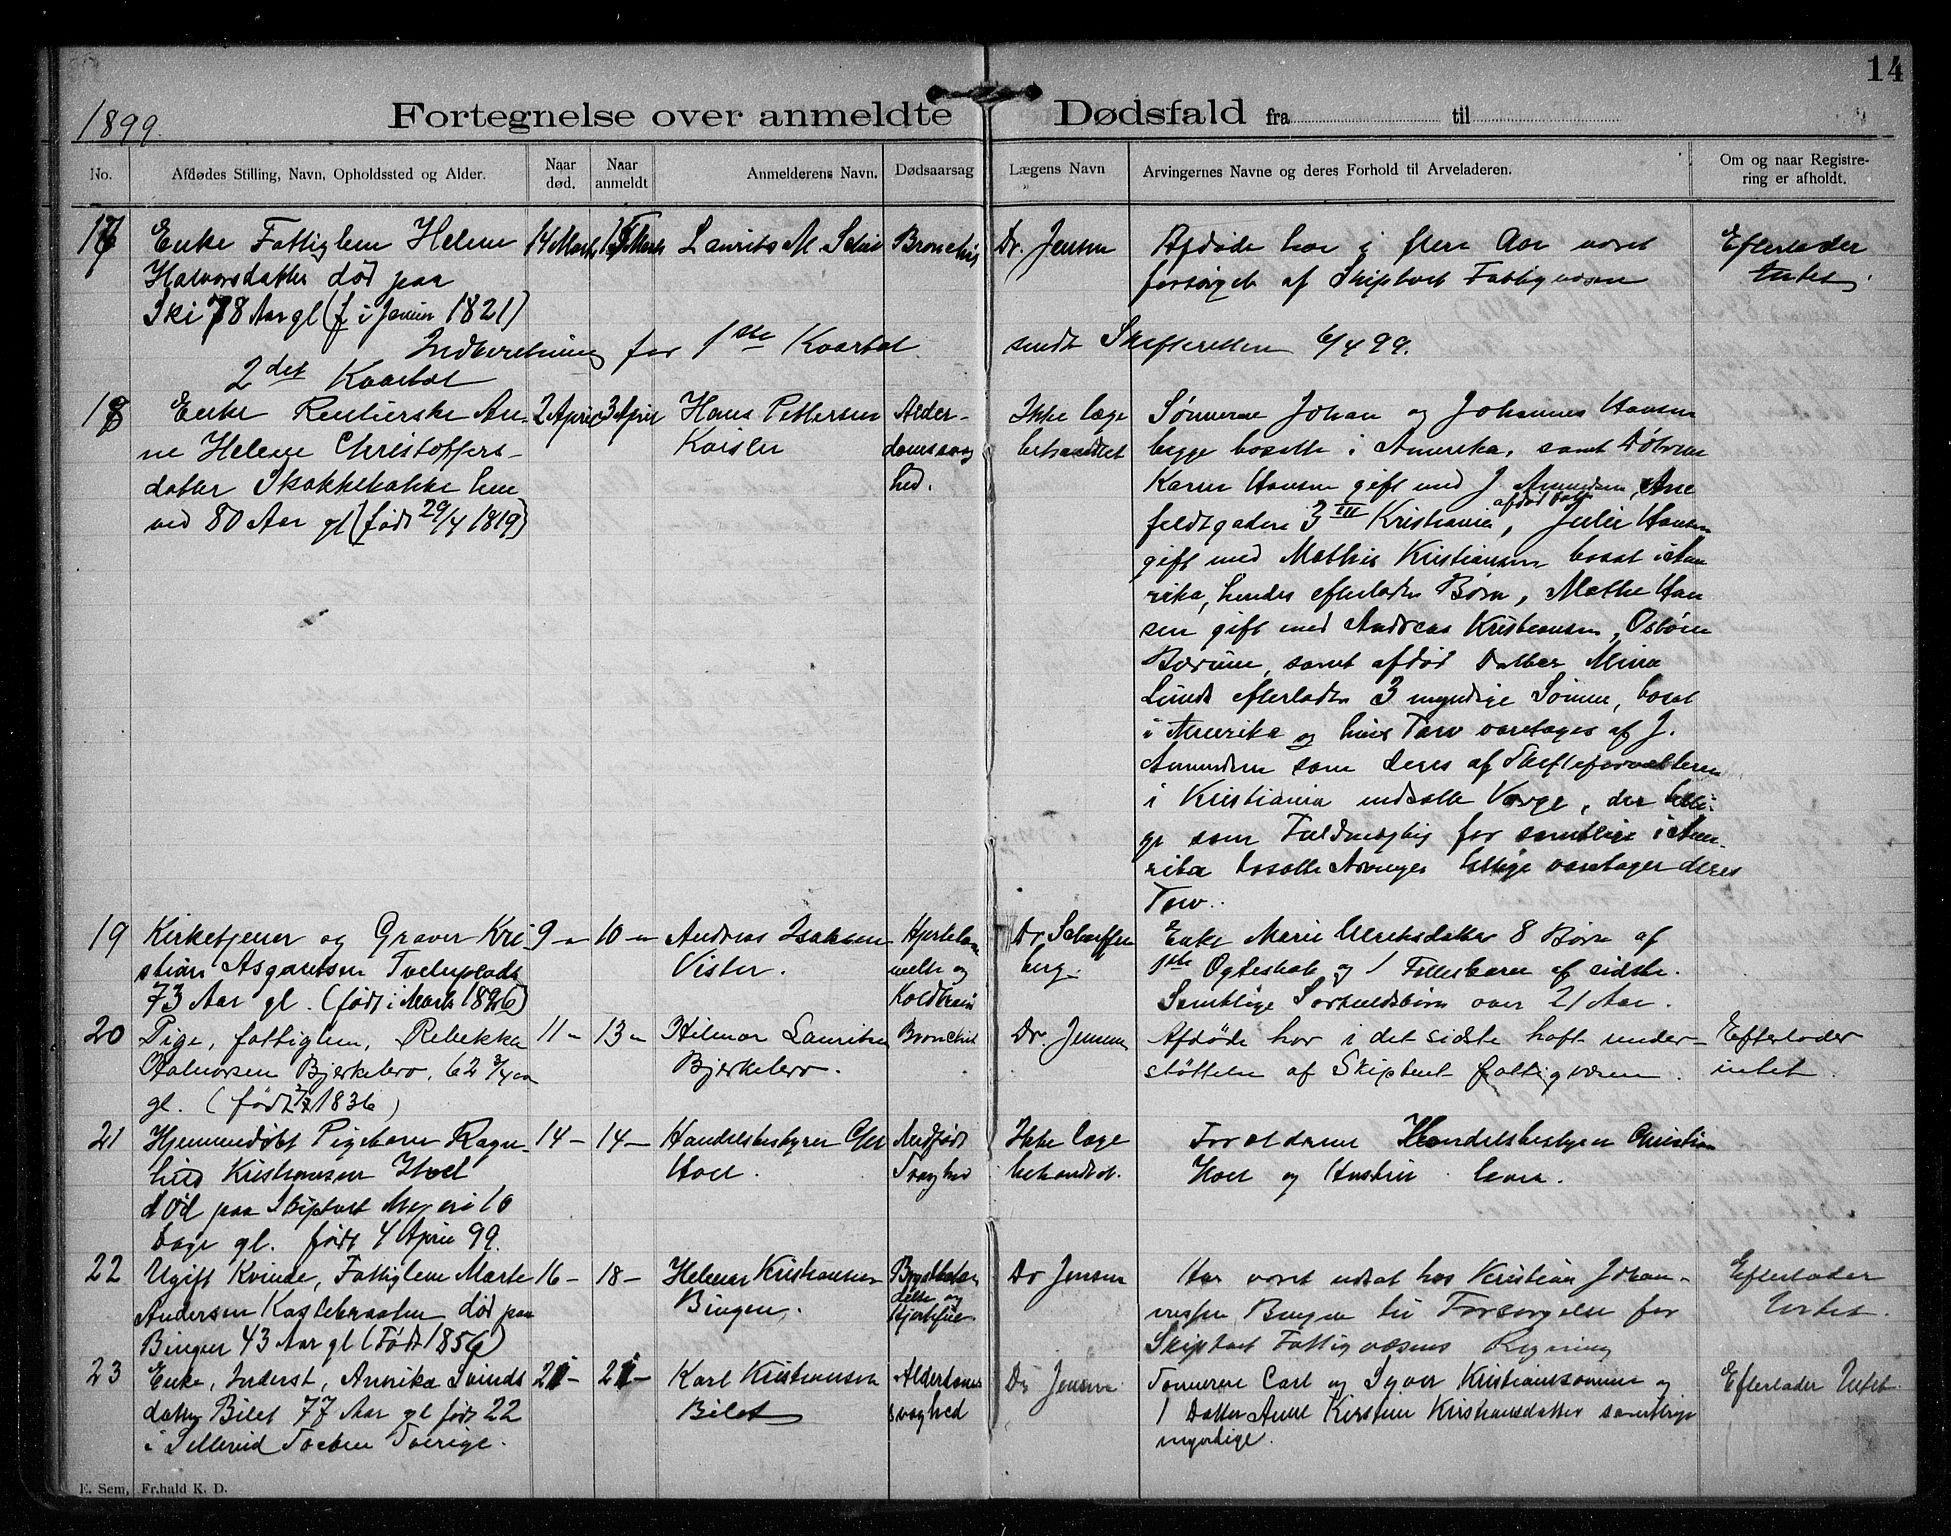 14
1899.
Fortegnelse over anmeldte Dødsfald fra til
No.
Afdødes Stilling, Navn, Opholdssted og Alder.
Naar død.
Naar anmeldt
Anmelderens Navn.
Dødsaarsag
Lægens Navn
Arvingernes Navne og deres Forhold til Arveladeren.
Om og naar Registre-
ring er afholdt.
17
Enke Fattiglem Helene
Halvorsdatter død paa
Ski 78 Aar gl (f. i Januar 1821)
14 Marts
15 Marts
Laurits M
Bronchit
Dr. Jensen
Afdøde har i flere Aar været
forsørget af Skiptvet Fattigvæsen
Efterlader
Intet.
Indberetning for 1ste Kvartal sendt Skifteretten 6/4 99.
2det Kvartal
18
Enke Rentierske An-
ne Helene Christoffers-
datter
ved 80 Aar gl (født 29/4 1819)
2 April
3 April
Hans Pettersen
Kaisler
Alder-
domssvag
hed.
Ikke læge
behandlet
Sønnerne Johan og Johannes Hansen
begge bosatte i Amerika, samt Døtrene
Karen Hansen gift med J. Amundsen,
feldtgaden 3 III Kristiania, Julie Hansen
gift med Mathis Kristiansen bosat i Ame
rika, hendes efterladte Børn, Mathe Han
sen gift med Andreas Kristiansen,
Bærum, samt afdød Datter Mina
Lunds efterladte 3 myndige Sønner, bosat
i Amerika og hvis Tarv varetages af J.
Amundsen som deres af Skifteforvalteren
i Kristiania indsatte Værge, der tilli-
ge som Fuldmægtig for samtlige i Ame-
rika bosatte Arvinger tillige varetager deres
Tarv.
19
Kirketjener og Graver Kri
stian Asgautsen Tveterplads
73 Aar gl. (født i Marts 1826)
9 -
10 -
Andreas Isaksen
Vister.
Hjertelam
melse og
Koldbrand
Dr Scharffen
berg.
Enke Marie Ulriksdatter 8 Børn af
1ste Ogteskab og 1 Fellesbarn af sidste.
Samtlige over 21 Aar.
20
Pige, fattiglem, Rebekka
Halvorsen Bjerkebro, 62 3/4 aar
gl. (født 1836)
11 -
13 -
Hilmar Lauritsen
Bjerkebro.
Bronchit
Dr. Jensen
Afdøde har i det sidste haft under-
støttelse af Skiptvet fattigvæsen.
Efterlader
intet.
21
Hjemmedøbt Pigebarn Ragn-
hild Kristiansen Hoel
død paa Skiptvet Meieri 10
Dage gl. født 4 April 99.
14 -
14 -
Handelsbestyrer Chr
Hoel.
Medfødt
Svaghed
Ikke læge
behandlet.
Forældrene Handelsbestyrer Christian
Hoel og Hustru lever.
22
Ugift Kvinde, Fattiglem Marte
Andersen Kastebraaten død paa
Bingen 43 Aar gl (Født 1856)
16 -
18 -
Helmer Kristiansen
Bingen.
Brystbetæn
delse og
Hjertefeil
Dr Jensen
Har været udsat hos Kristian Johan-
nesen Bingen til Forsørgelse for
Skiptvet Fattigvæsens Regning
Efterlader
Intet.
23
Enke, Inderst, Annika Svends
datter Bilet 77 Aar gl født 22
i Sillerud Socken Sverige.
21 -
21 -
Karl Kristiansen
Bilet
Alderdoms
svaghed
Dr Jensen
Sønnerne Carl og Syver Kristianssønner og
1 Datter Anne Kirstine Kristiansdatter samtlige
myndige.
Efterlader Intet.
E. Sem, Fr.hald K. D.